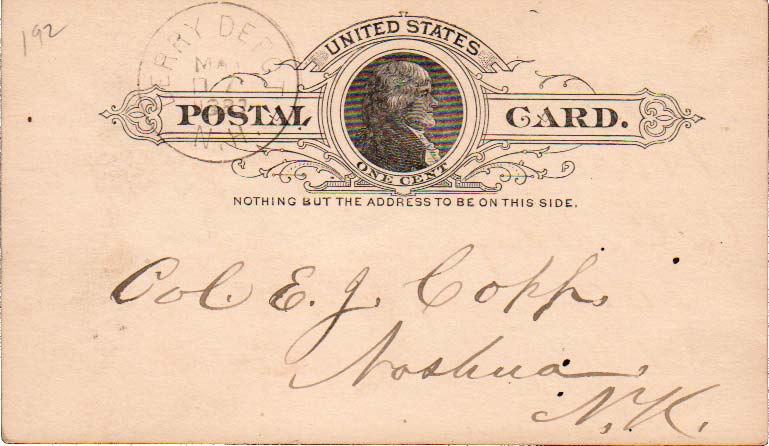 192
DERRY DEPOT
N.H.
UNITED STATES
POSTAL CARD.
ONE CENT
NOTHING BUT THE ADDRESS TO BE ON THIS SIDE.
Col. E. J. Copp.
Nashua
N.H.